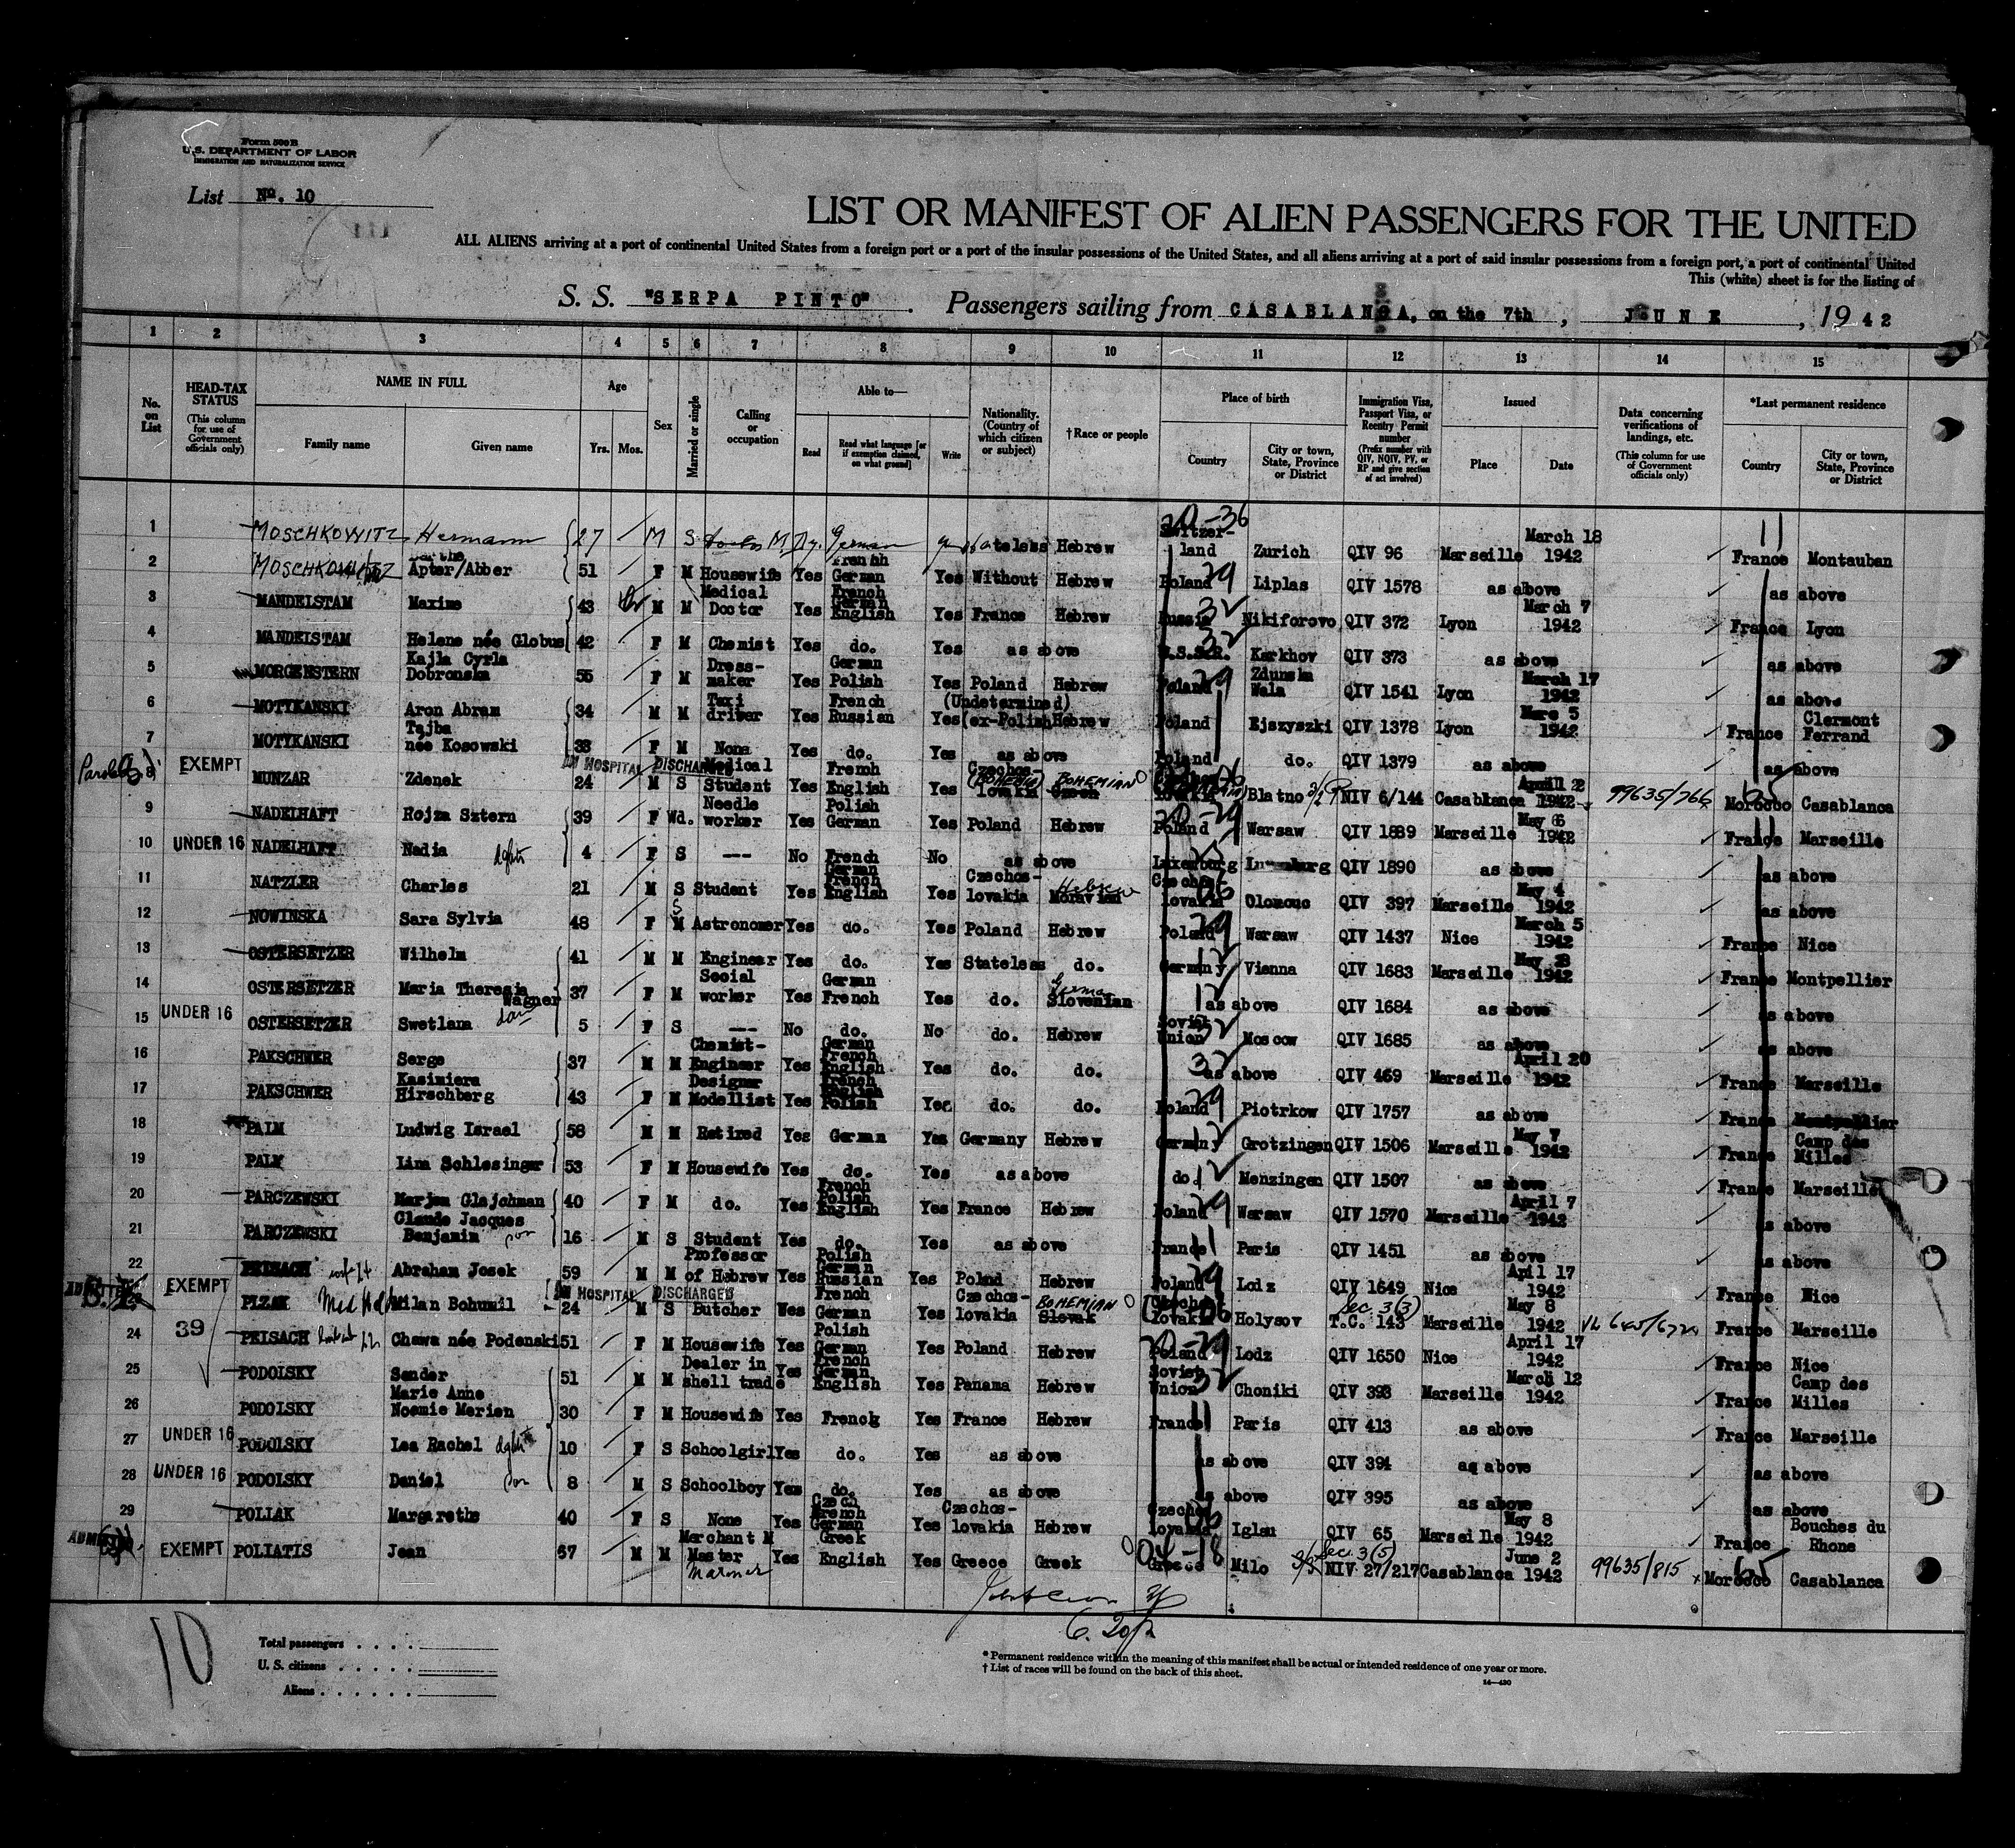 Form 500 B
U.S. DEPARTMENT OF LABOR
IMMIGRATION AND NATURALIZATION SERVICE
List No. 10
LIST OR MANIFEST OF ALIEN PASSENGERS FOR THE UNITED
ALL ALIENS arriving at a port of continental United States from a foreign port or a port of the insular possessions of the United States, and all aliens arriving at a port of said insular possessions from a foreign port, a port of continental United
This (white) sheet is for the listing of
S. S. "SERPA PINTO". Passengers sailing from CASABLANCA, on the 7th, JUNE, 1942
1 2 3 4 5 6 7 8 9 10 11 12 13 14 15
No. on List
HEAD-TAX STATUS (This column for use of Government officials only)
NAME IN FULL Family name Given name
Age Yrs. Mos.
Sex
Married or single
Calling or occupation
Able to— Read Read what language [or if exemption claimed, on what ground] Write
Nationality. (Country of which citizen or subject)
†Race or people
Place of birth Country City or town, State, Province or District
Immigration Visa, Passport Visa, or Reentry Permit number (Prefix number with QIV, NQIV, PV, or RP and give section of act involved)
Issued Place Date
Data concerning verifications of landings, etc. (This column for use of Government officials only)
*Last permanent residence Country City or town, State, Province or District
1 MOSCHKOWITZ Hermann 27 M S German Stateless Hebrew Switzerland Zurich QIV 96 Marseille March 18 1942 France Montauban
2 MOSCHKOWITZ Apter/Abber 51 F M Housewife Yes French German Yes Without Hebrew Poland Liplas QIV 1578 as above as above
3 MANDELSTAM Maxime 43 M M Medical Doctor Yes French German English Yes France Hebrew Russia Nikiforovo QIV 372 Lyon March 7 1942 France Lyon
4 MANDELSTAM Helene née Globus 42 F M Chemist Yes do. Yes as above U.S.S.R. Karkhov QIV 373 as above as above
5 MORGENSTERN Kajla Cyrla Dobronska 55 F M Dress-maker Yes German Polish Yes Poland Hebrew Poland Zdunska Wala QIV 1541 Lyon March 17 1942 as above
6 MOTYKANSKI Aron Abram 34 M M Taxi driver Yes French Russian Yes (Undetermined) (ex-Polish Hebrew Poland Ejszyszki QIV 1378 Lyon Mars 5 1942 France Clermont Ferrand
7 MOTYKANSKI Tajba née Kosowski 38 F M None Yes do. Yes as above Poland do. QIV 1379 as above as above
Paroled 8 EXEMPT MUNZAR Zdenek IN HOSPITAL DISCHARGED 24 M S Medical Student Yes French English Yes Czechos-lovakia (BOHEMIA) BOHEMIAN Czech Blatno NIV 6/144 Casablanca April 2 1942 99635/766 Morocco Casablanca
9 NADELHAFT Rojza Sztern 39 F Wd. Needle worker Yes Polish German Yes Poland Hebrew Poland Warsaw QIV 1889 Marseille May 6 1942 France Marseille
10 UNDER 16 NADELHAFT Nadia dghtr 4 F S --- No French No as above Luxemburg QIV 1890 as above as above
11 NATZLER Charles 21 M S Student Yes German French English Yes Czechos-lovakia Hebrew Moravian Czechos-lovakia Olomouc QIV 397 Marseille May 4 1942 as above
12 NOWINSKA Sara Sylvia 48 F S M Astronomer Yes do. Yes Poland Hebrew Poland Warsaw QIV 1437 Nice March 5 1942 France Nice
13 OSTERSETZER Wilhelm 41 M M Engineer Yes do. Yes Stateless do. Germany Vienna QIV 1683 Marseille May 28 1942 France Montpellier
14 OSTERSETZER Maria Theresia Wagner 37 F M Social worker Yes German French Yes do. German Slovenian as above QIV 1684 as above as above
15 UNDER 16 OSTERSETZER Swetlana dau 5 F S --- No do. No do. Hebrew Soviet Union Moscow QIV 1685 as above as above
16 PAKSCHWER Serge 37 M M Chemist-Engineer Yes German French English Yes do. do. as above QIV 469 Marseille April 20 1942 France Marseille
17 PAKSCHWER Kasimiera Hirschberg 43 F M Designer Modellist Yes French English Polish Yes do. do. Poland Piotrkow QIV 1757 as above France Montpellier
18 PALM Ludwig Israel 58 M M Retired Yes German Yes Germany Hebrew Germany Grotzingen QIV 1506 Marseille May 7 1942 France Camp des Milles
19 PALM Lina Schlesinger 53 F M Housewife Yes do. Yes as above do. Menzingen QIV 1507 as above France Marseille
20 PARCZEWSKI Marjem Glajchman 40 F M do. Yes French Polish English Yes France Hebrew Poland Warsaw QIV 1570 Marseille April 7 1942 as above
21 PARCZEWSKI Claude Jacques Benjamin son 16 M S Student Yes do. Yes as above France Paris QIV 1451 as above as above
22 PEISACH Abraham Josek 59 M M Professor of Hebrew Yes Polish German Russian Yes Polnd Hebrew Poland Lodz QIV 1649 Nice Apil 17 1942 France Nice
EXEMPT PLZAK Milan Bohumil IN HOSPITAL DISCHARGED 24 M S Butcher Wes French German Yes Czechos-lovakia BOHEMIAN Slovak Czechos-lovakia Holysov Sec. 3(3) T.C. 143 Marseille May 8 1942 France Marseille
39
24 PEISACH Chawa née Podenski 51 F M Housewife Yes Polish German Yes Poland Hebrew Poland Lodz QIV 1650 Nice April 17 1942 France Nice
25 PODOLSKY Sender 51 M M Dealer in shell trade Yes French German English Yes Panama Hebrew Soviet Union Choniki QIV 393 Marseille March 12 1942 France Camp des Milles
26 PODOLSKY Marie Anne Noemie Merien 30 F M Housewife Yes Frenck Yes France Hebrew France Paris QIV 413 as above France Marseille
27 UNDER 16 PODOLSKY Lea Rachel dghtr 10 F S Schoolgirl Yes do. Yes as above as above QIV 394 aq above as above
28 UNDER 16 PODOLSKY Daniel son 8 M S Schoolboy Yes do. Yes as above as above QIV 395 as above as above
29 POLLAK Margarethe 40 F S None Yes Czech French German Yes Czechos-lovakia Hebrew Czechos-lovakia Iglau QIV 65 Marseille May 8 1942 France Bouches du Rhone
ADMITTED EXEMPT POLIATIS Jean 67 M M Merchant M Master Mariner Yes Greek English Yes Greece Greek Greece Milo Sec. 3(5) NIV 27/217 Casablanca June 2 1942 99635/815 Morocco Casablanca
10
Total passengers
U. S. citizens
Aliens
* Permanent residence within the meaning of this manifest shall be actual or intended residence of one year or more.
† List of races will be found on the back of this sheet.
14—430